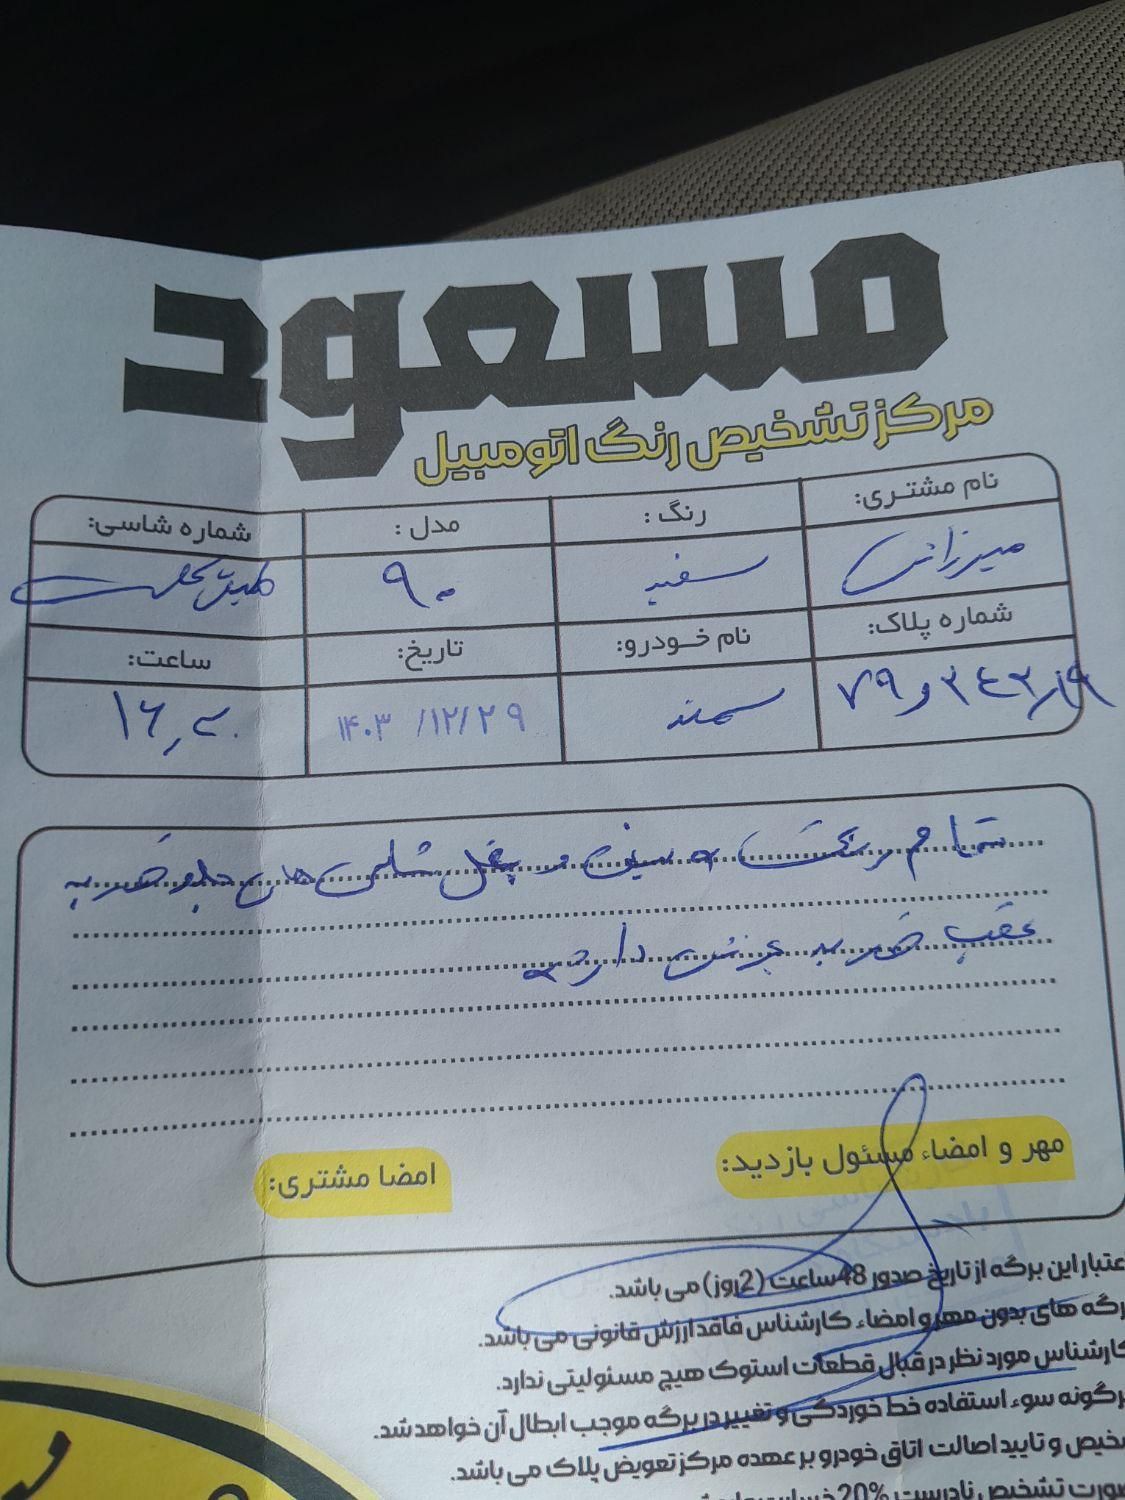 مسعود
مرکز تشخیص رنگ اتومبیل
نام مشتری: رنگ : مدل : شماره شاسی:
سفید ۹۰
شماره پلاک: نام خودرو: تاریخ: ساعت:
سمند ۱۴۰۳/۱۲/۲۹
تمام رنگ و سینی و بغل شلگی های جلو ضربه
عقب ضربه جزئی دارد
مهر و امضاء مسئول بازدید: امضا مشتری:
عتبار این برگه از تاریخ صدور 48ساعت (2روز) می باشد.
رگه های بدون مهر و امضاء کارشناس فاقد ارزش قانونی می باشد.
کارشناس مورد نظر در قبال قطعات استوک هیچ مسئولیتی ندارد.
رگونه سوء استفاده خط خوردگی و تغییر در برگه موجب ابطال آن خواهد شد.
خیص و تایید اصالت اتاق خودرو بر عهده مرکز تعویض پلاک می باشد.
صورت تشخیص نادرست 20%